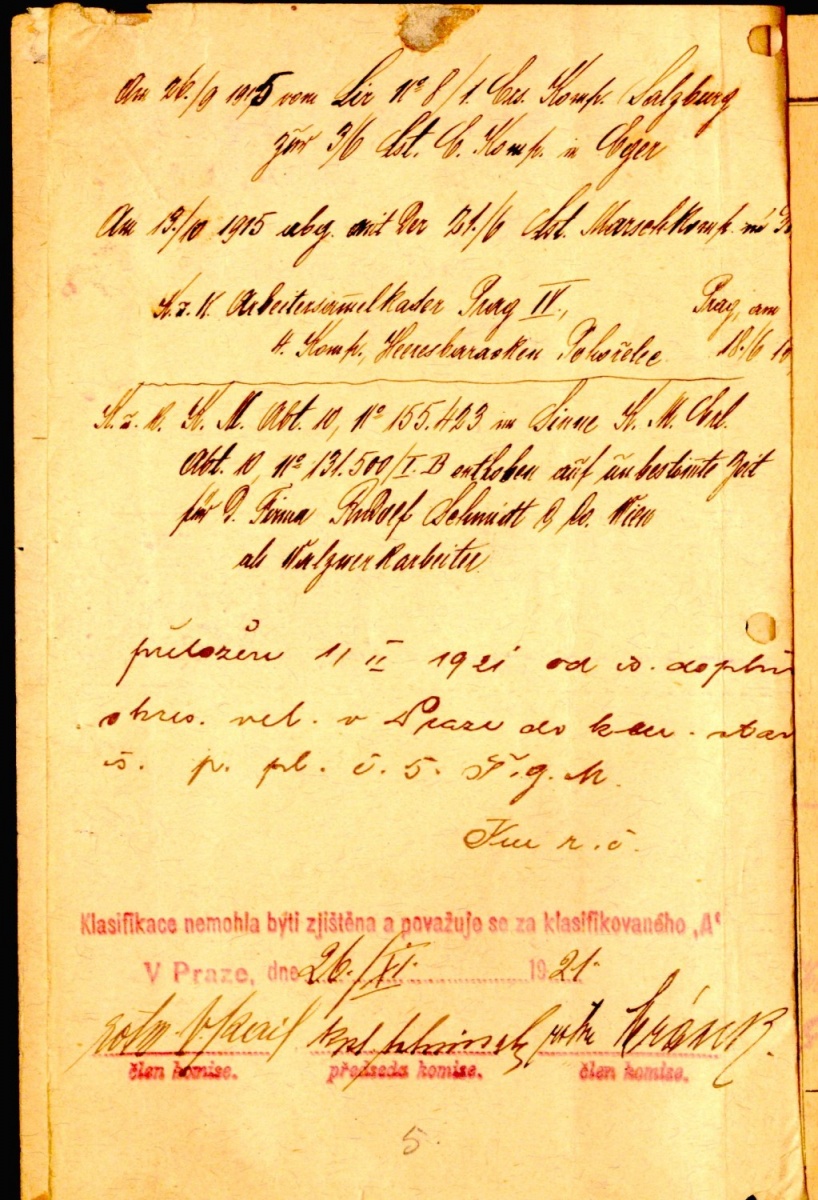 Am 26./9 1915 vom Lir Nº 8/1. Ers. Komp. Salzburg
zur 3/6 Lst. E. Komp. in Eger
Am 13./10 1915 abg. mit der 21./6 Lst. Marschkomp.
K.u.K. Arbeitersammelkader Prag IV., Prag, am
4. Komp., Heeresbaracken Pohořelec 18./6
K.u.K. K. M. Abt. 10, Nº 155.423 im Sinne K. M. Erl.
Abt. 10, Nº 131.500/I. B enthoben auf unbestimmte Zeit
für d. Firma Rudolf Schmidt & Co. Wien
als Walzwerkarbeiter
přeložen 11 II 1921 od
okres. vel. v Praze do
p. pl. č. 5. T.g.M.
r.v.
Klasifikace nemohla býti zjištěna a považuje se za klasifikovaného „A“
V Praze, dne 26./XI. 1921.
člen komise. předseda komise. člen komise.
5